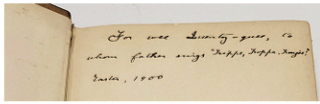 For wee Quenty-quee, to
whom father sings "Trippa, Troppa, Tronjes"
Easter, 1900